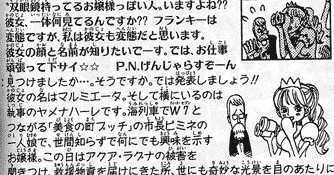 "双眼鏡持ってるお嬢様っぽい人。いますよね??
彼女、一体何見てるんですか?? フランキーは
変態ですが、私は彼女も変態だと思います。
彼女の顔と名前が知りたいでーす。では、お仕事
頑張って下サイ☆☆ P.N.げんじゃらすぞーん
見つけましたか…。そうですか。では発表しましょう!!
彼女の名はマルミエータ。そして横にいるのは
執事のヤメナハーレです。海列車でW7と
つながる「美食の町プッチ」の市長ビミネの
一人娘で、世間知らずで何にでも興味を示す
お嬢様。この日はアクア・ラグナの被害を
聞きつけ、救援物資を届けにきた所、世にも奇妙な光景を目のあたりに